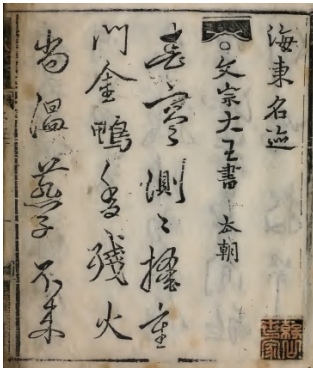 海東名迹
○文宗大王書 本朝
春寒惻〻掩重
門金鴨香殘火
尚溫燕子不来